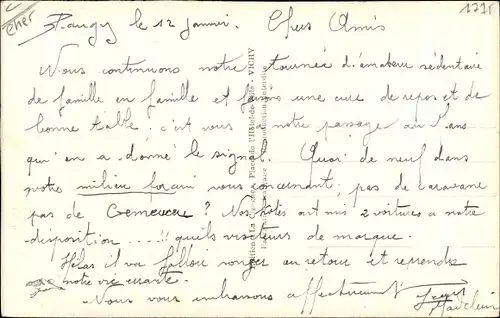 Cher
1721
Baugy le 12 Janvier. Chers Amis
Nous continuons notre tournée d'amateur sédentaire
de famille en famille et faisons une cure de repos et de
bonne table. c'est vous a notre passage ans
qui en a donné le signal. Quoi de neuf dans
votre milieu forain vous concernant; pas de caravane
pas de ? Nos hôtes ont mis 2 voitures a notre
disposition.....!! quels visiteurs de marque.
Hélas il va falloir songer au retour et reprendre
notre vie errante.
Nous vous embrassons affectueusement
Madeleine
Place de l'Hôtel-de-Ville - VICHY
Reproduction interdite